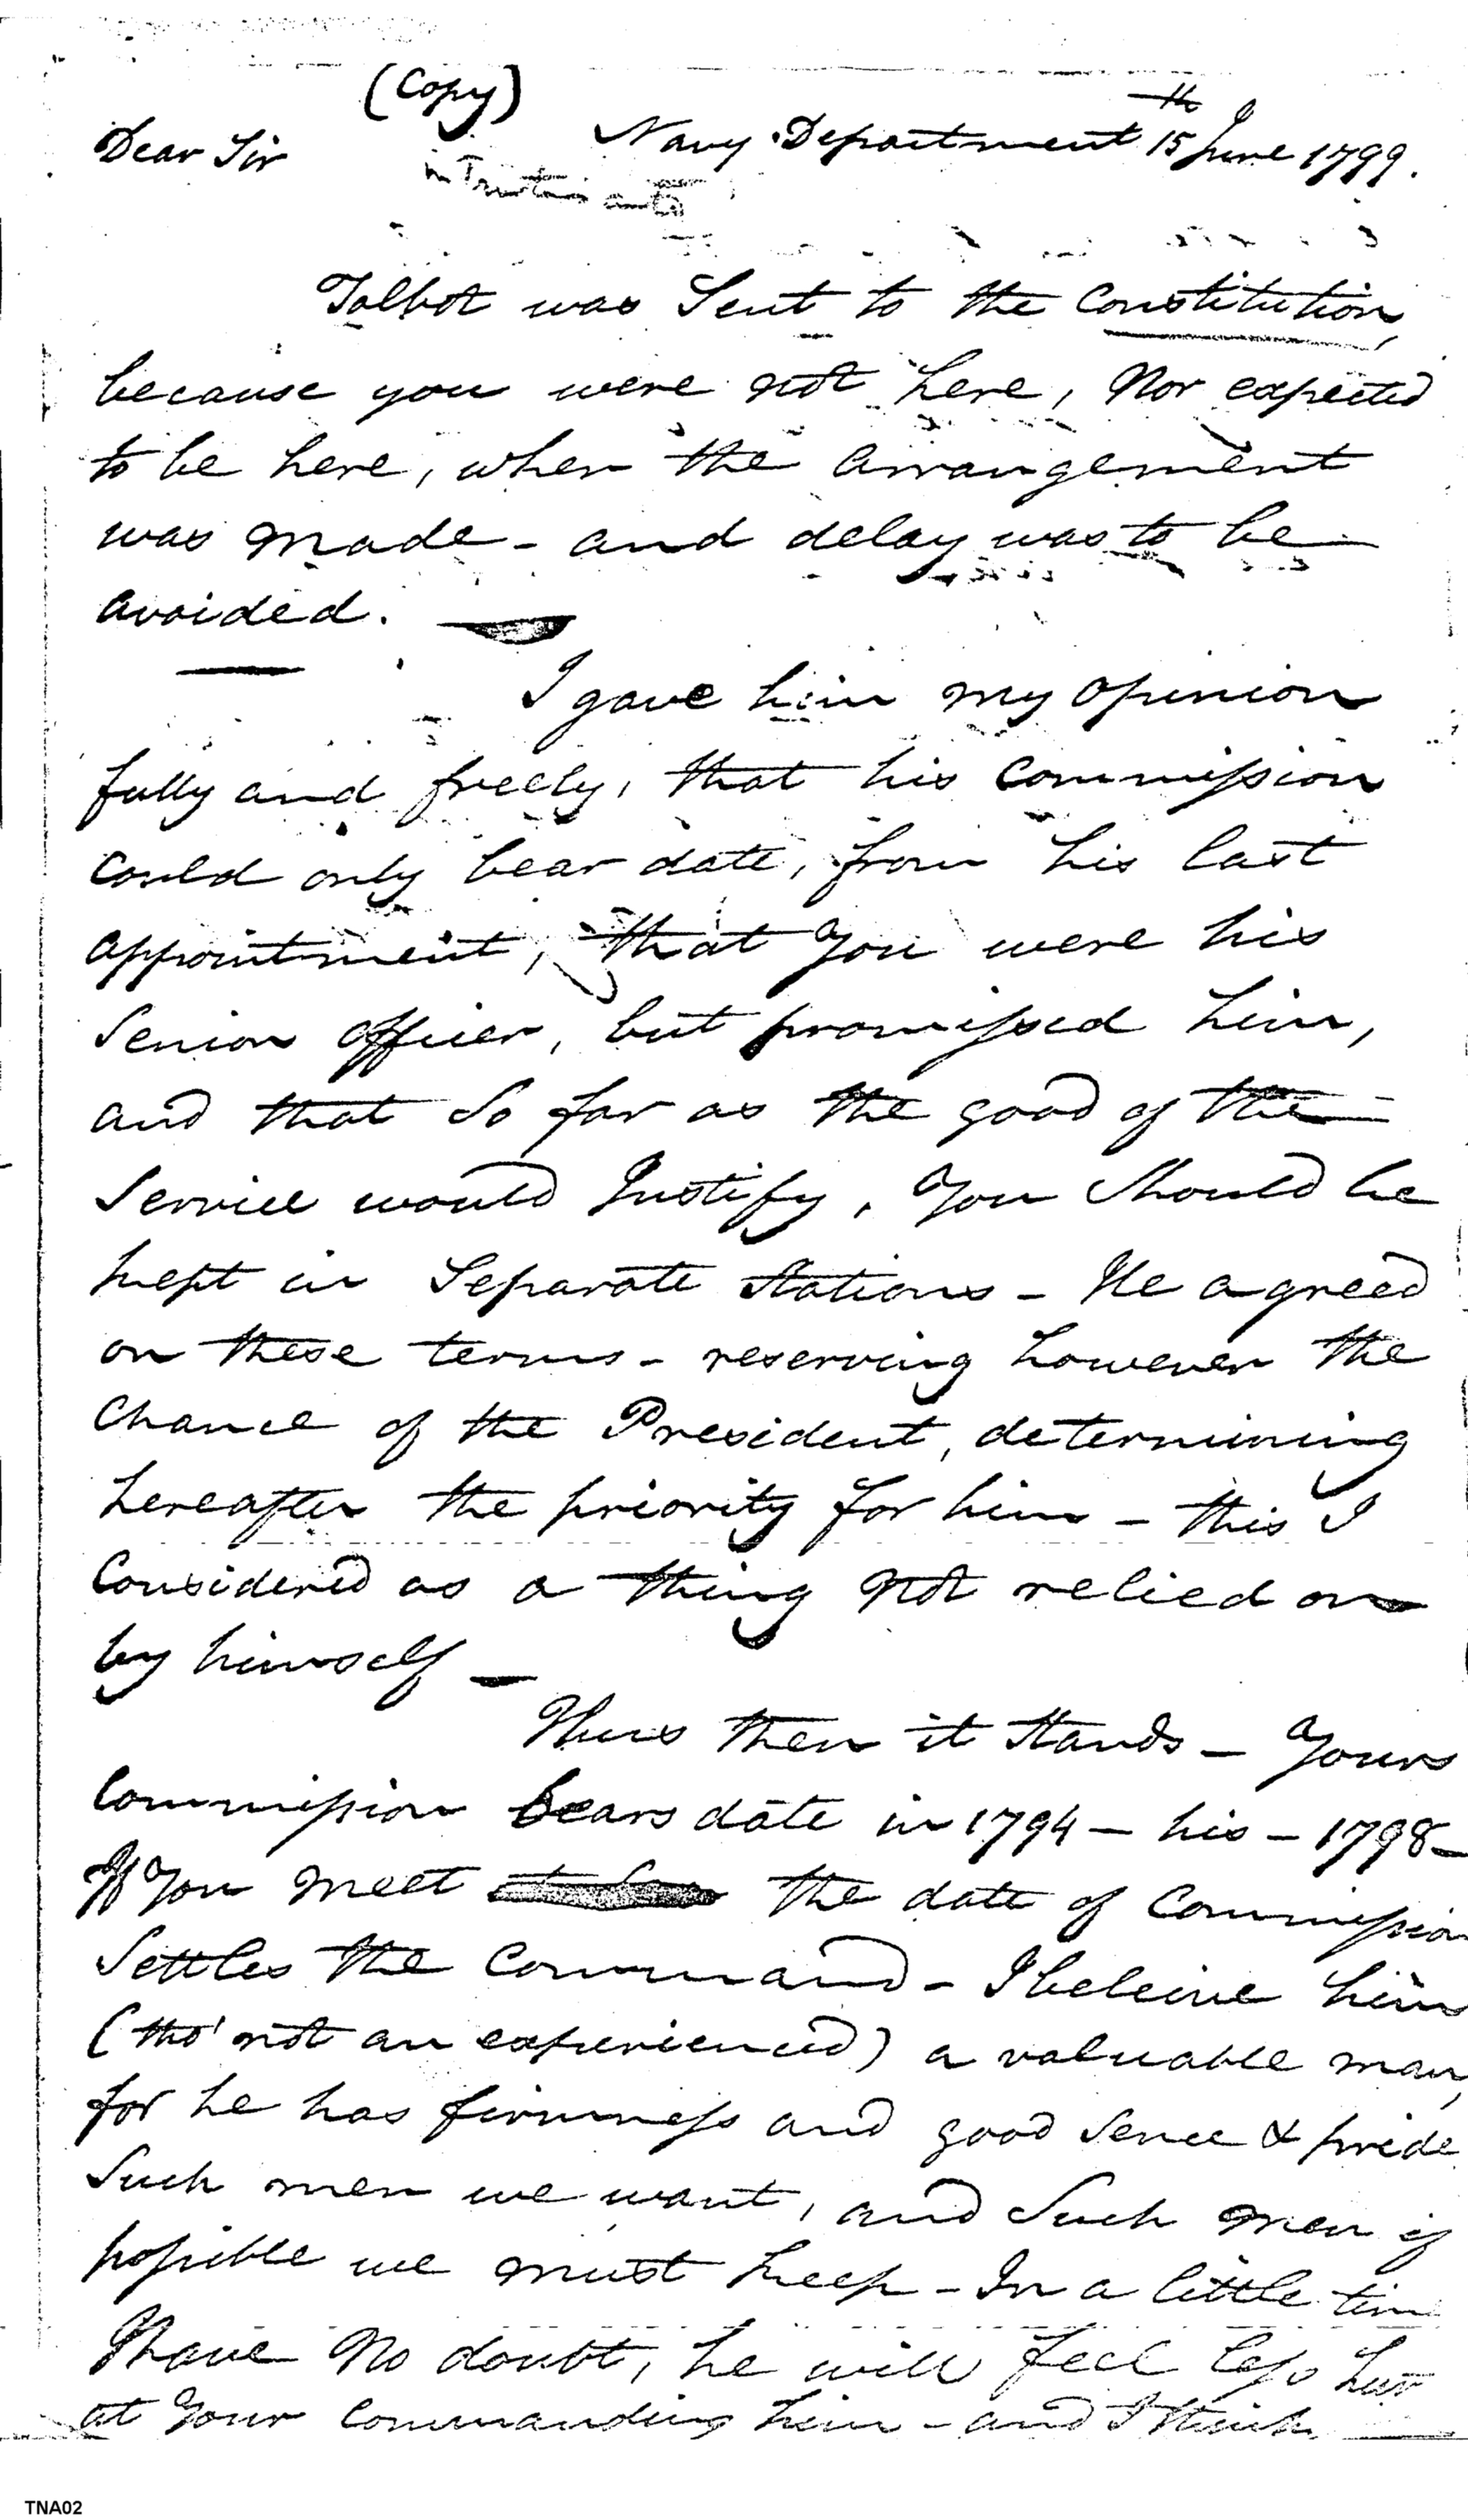 (Copy)
Navy Department 15th June 1799.
Dear Sir
Talbot was Sent to the Constitution,
because you were not here, Nor expected
to be here, when the Arrangement
was made - and delay was to be
avoided.
I gave him my opinion
fully and freely, that his Commission
could only bear date, from his last
appointment, that you were his
Senior officer, but promissed him,
and that So far as the good of the
Service would Justify, you Should be
kept in Separate Stations - He agreed
on these terms - reserving however the
Chance of the President, determining
hereafter the priority for him - this I
Considered as a thing not relied on
by himself -
Thus then it Stands - Yours
Commission bears date in 1794 - his - 1798 -
If you meet the date of Commission
Settles the Command - I beleive him
(tho' not an experienced) a valuable man,
for he has firmness and good Sence & pride
Such men we want, and Such men if
possible we must keep - In a little time
I have No doubt, he will feel less hurt
at your Commanding him - and I think
TNA02